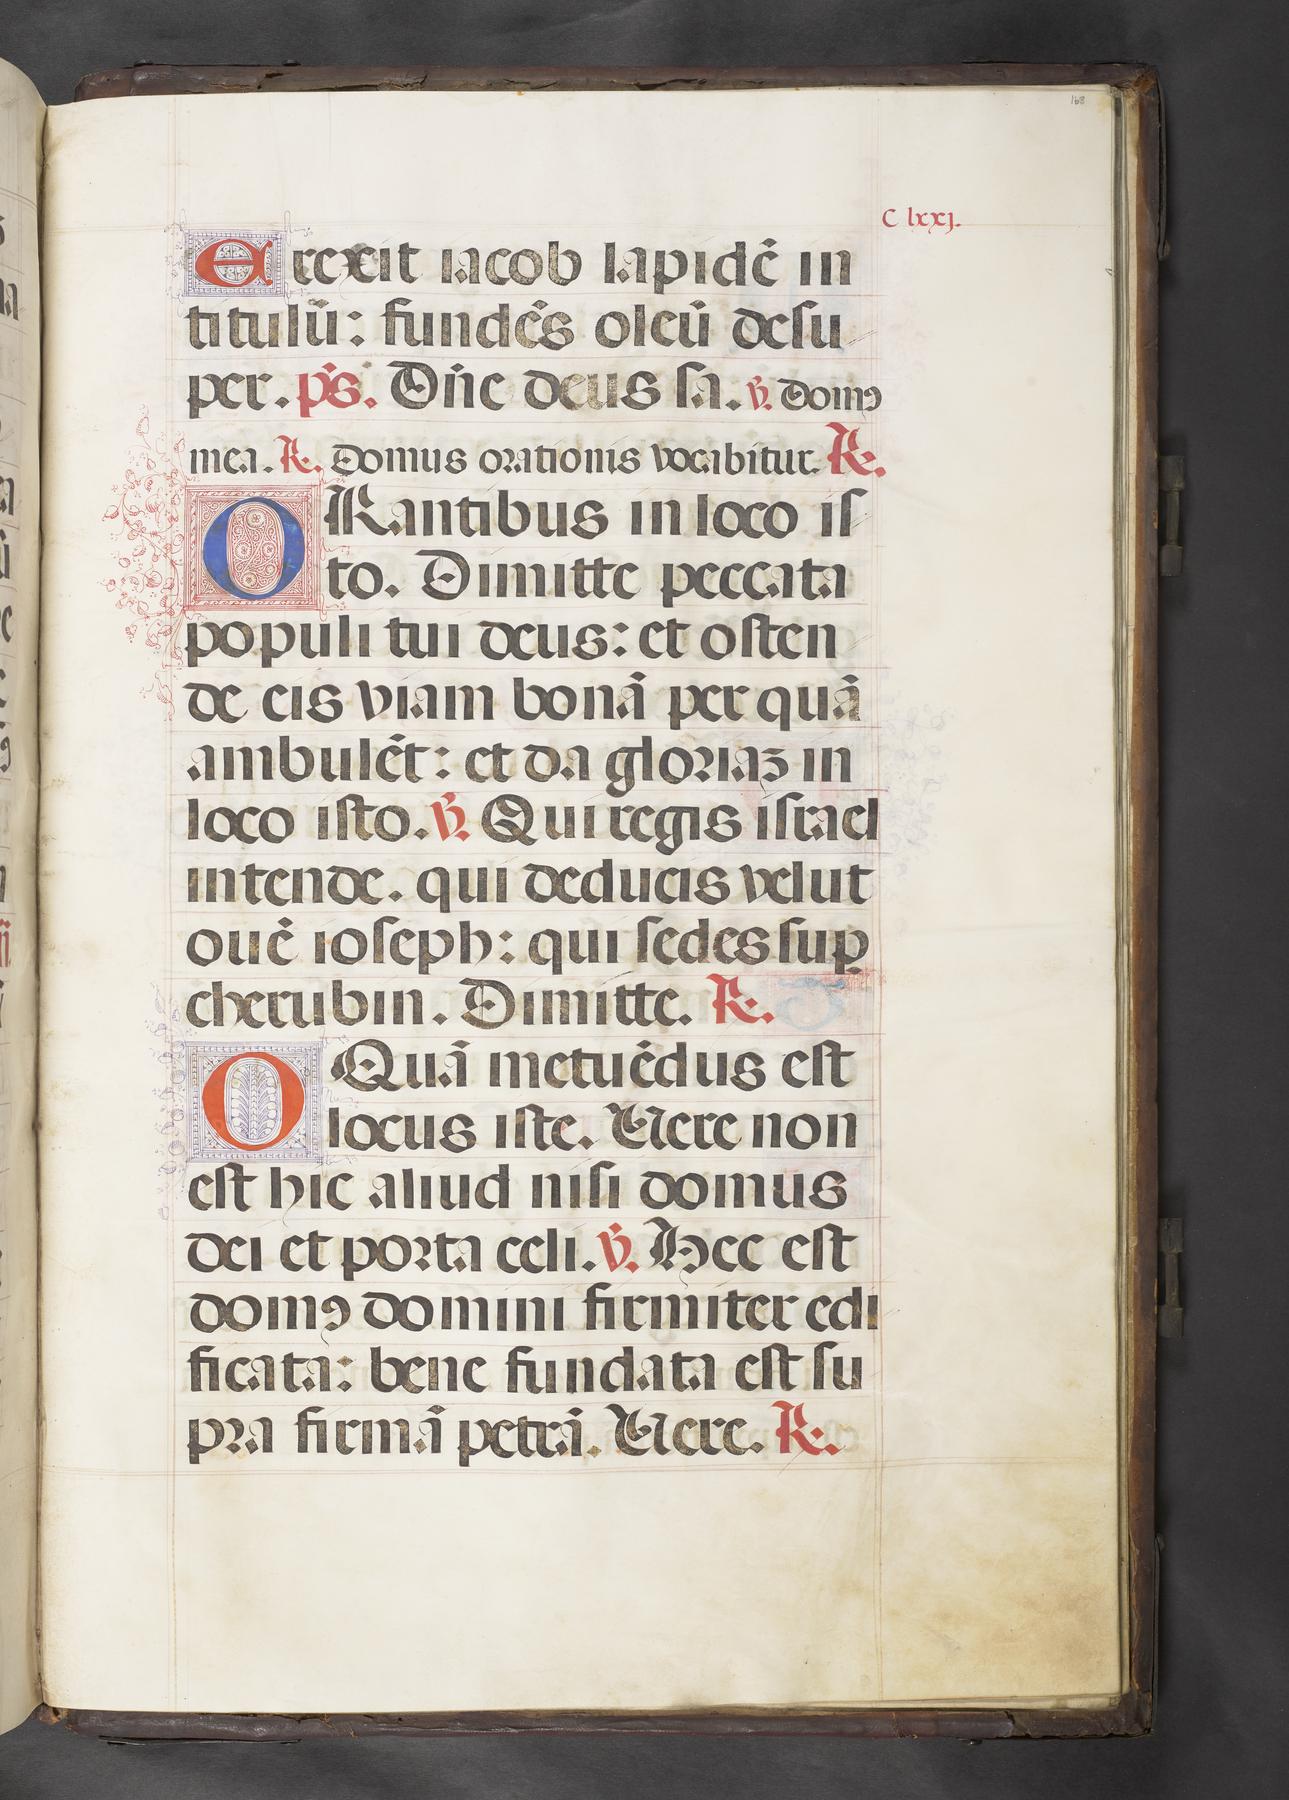 168
C lxxj.
Erexit iacob lapidē in
titulū: fundēs oleū desu
per. p̄s. Dn̄e deus sa. ℣. Domꝯ
mea. ℟. Domus orationis vocabitur. ℟.
ORantibus in loco is
to. Dimitte peccata
populi tui deus: et osten
de eis viam bonā per quā
ambulēt: et da gloriaꝫ in
loco isto. ℣. Qui regis israel
intende. qui deducis velut
ouē ioseph: qui sedes suꝑ
cherubin. Dimitte. ℟.
O Quā metuēdus est
locus iste. Vere non
est hic aliud nisi domus
dei et porta celi. ℣. Hec est
domꝯ domini firmiter edi
ficata: bene fundata est su
pra firmā petrā. Vere. ℟.